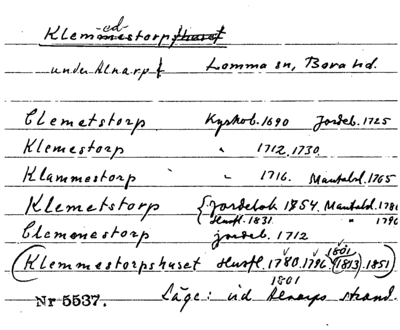 Klemmestorpshuset
ed
under Alnarp Lomma sn, Bara hd.
Clemetstorp Kyrkob. 1690 Jordeb. 1725
Klemestorp " 1712. 1730.
Klammestorp " 1716. Mantalsl. 1765
Klemetstorp { jordebok 1754. Mantalsl. 1780
Husfl. 1831 " 1790
Clemenestorp jordeb. 1712
1801
(Klemmestorpshuset Husfl. 1780. 1796. (1813) 1851)
1801
Nr 5537. Läge: vid Alnarps strand.